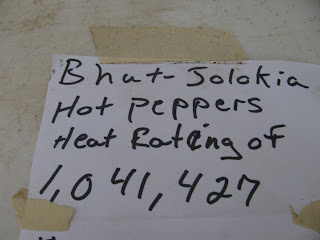 Bhut-Jolokia
Hot peppers
Heat Rating of
1,041,427